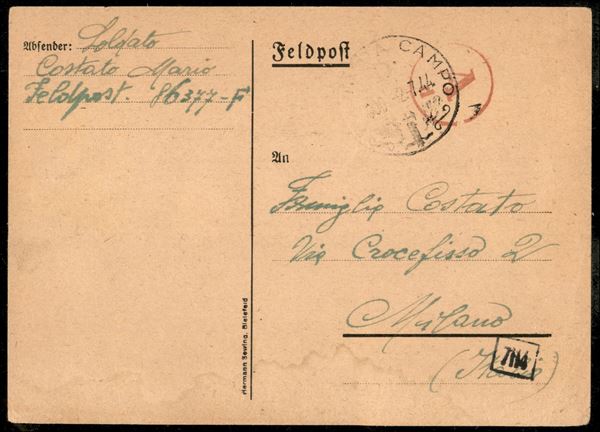 Absender: Soldato
Costato Mario
Feldpost 86377-F
Feldpost
A CAMPO
7.44
A
An
Famiglia Costato
Via Crocefisso 2
Milano
(Italia)
7114
Hermann Sewing, Bielefeld